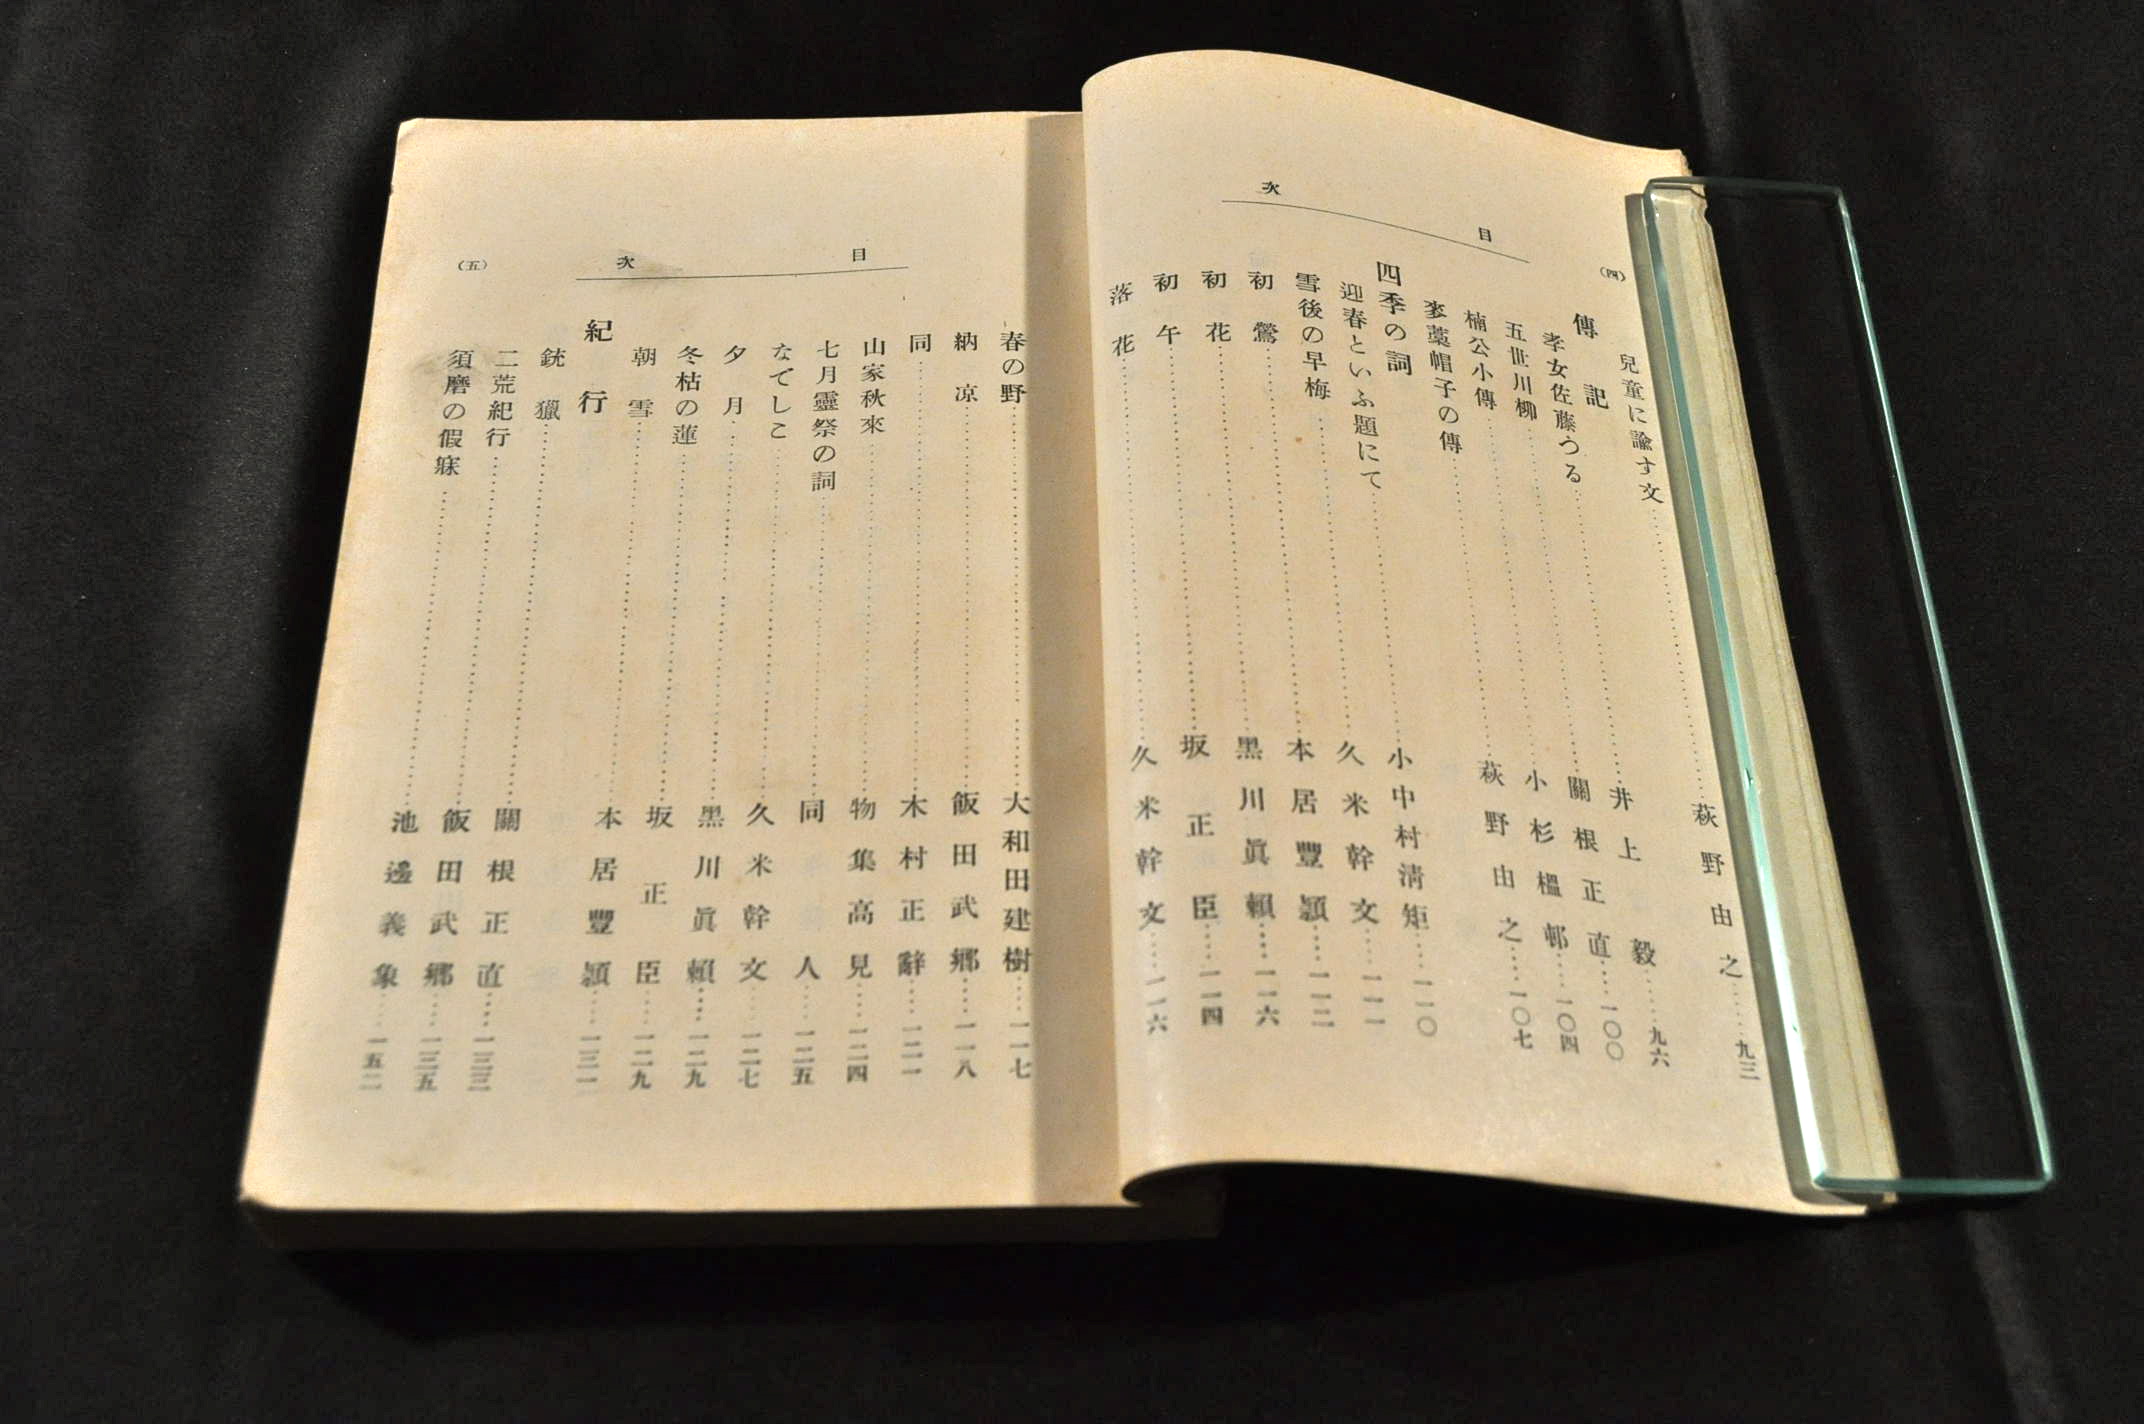 目次
(四)
兒童に諭す文……萩野由之……九三
傳記
孝女佐藤つる……井上毅……九六
五世川柳……關根正直……一〇〇
楠公小傳……小杉榲邨……一〇四
麥藁帽子の傳……萩野由之……一〇七
四季の詞
迎春といふ題にて……小中村淸矩……一一〇
雪後の早梅……久米幹文……一一一
初鶯……本居豐頴……一一二
初花……黑川眞賴……一一六
初午……坂正臣……一一四
落花……久米幹文……一一六
目次
(五)
春の野……大和田建樹……一一七
納凉……飯田武郷……一一八
同……木村正辭……一二一
山家秋來……物集高見……一二四
七月靈祭の詞……同人……一二五
なでしこ……久米幹文……一二七
夕月……黑川眞賴……一二九
朝雪……本居豐頴……一三一
冬枯の蓮……坂正臣……一二九
紀行
銃獵……關根正直……一三三
二荒紀行……飯田武郷……一三五
須磨の假寐……池邊義象……一五二